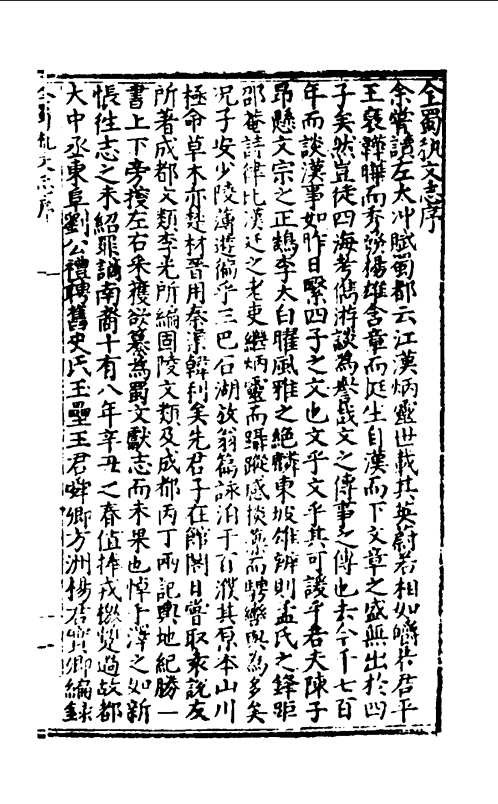 全蜀秇文志序
余嘗讀左太冲賦蜀都云江漢炳靈世載其英蔚若相如皭若君平
王褒韡曄而秀發楊雄含章而挺生自漢而下文章之盛無出於四
子矣然豈徒四海考儁游談為譽哉文之傳事之傳也去今千七百
年而談漢事如昨日緊四子之文也文乎文乎其可諼乎若夫陳子
昂懸文宗之正鵠李太白曜風雅之絕麟東坡雄辨則孟氏之鋒距
邵菴詩律比漢廷之老吏繼炳靈而躡蹤感掞藻而騁轡輿為多矣
况子安少陵薄遊徧乎三巴石湖放翁篇詠洎于百濮其原本山川
極命草木亦楚材晉用秦渠韓利矣先君子在館閣日嘗取袁說友
所著成都文類李光所編固陵文類及成都丙丁兩記輿地紀勝一
書上下旁搜左右采獲欲纂為蜀文獻志而未果也悼手澤之如新
悵往志之未紹罪謫南裔十有八年辛丑之春值捧戎檄暫過故都
大中丞東阜劉公禮聘舊史氏玉壘王君舜卿方洲楊君實卿編錄
全蜀秇文志序
一